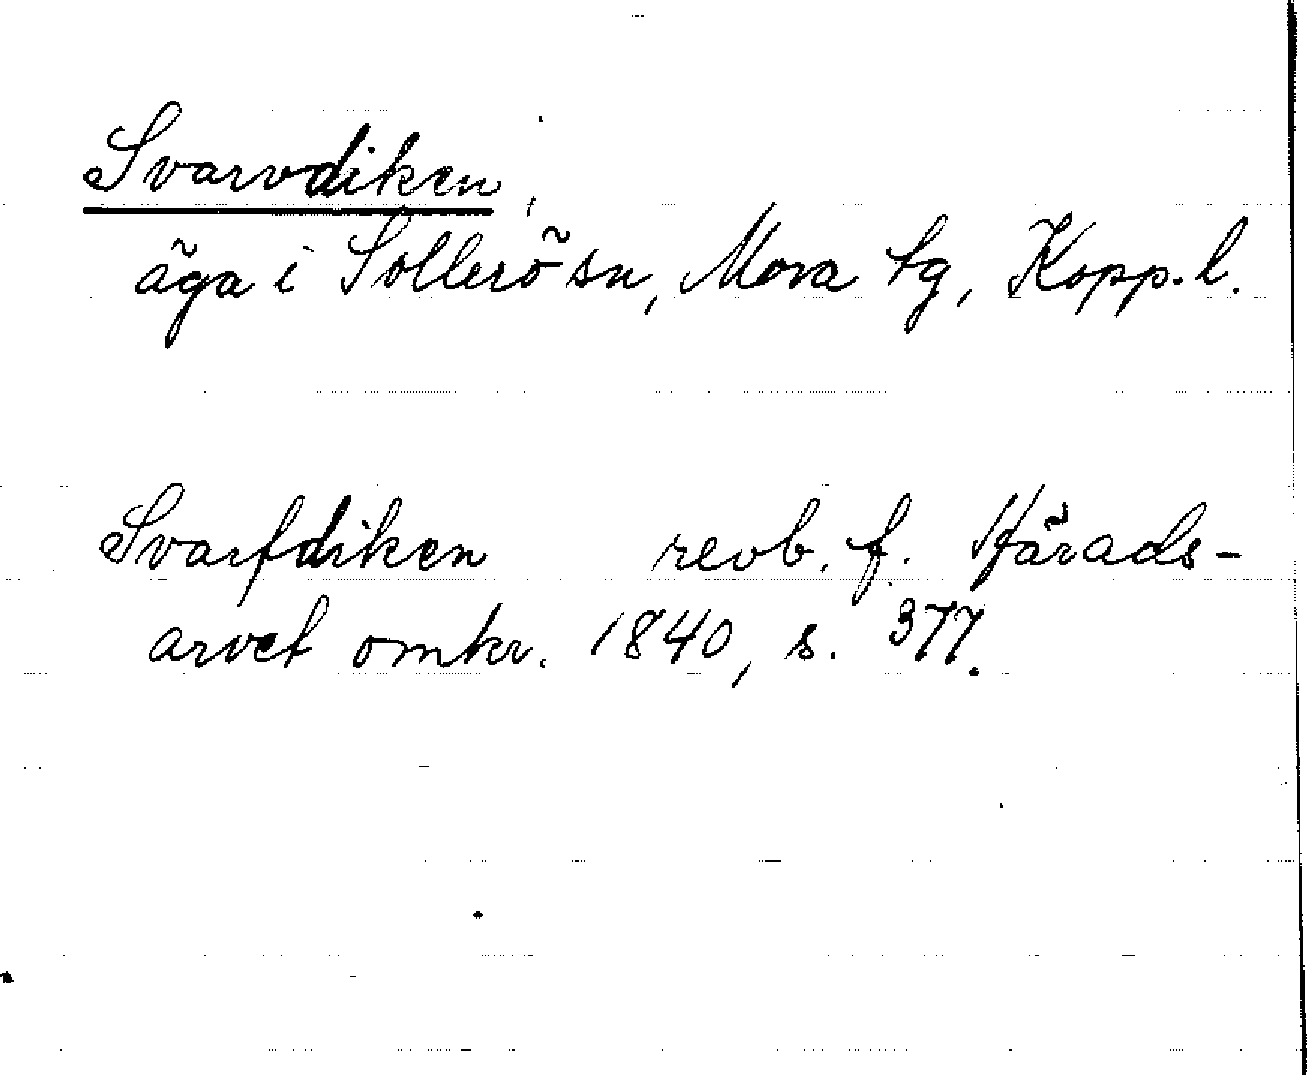 Svarvdiken,
äga i Sollerö sn, Mora tg, Kopp.l.
Svarfdiken revb. f. Härads-
arvet omkr. 1840, s. 377.